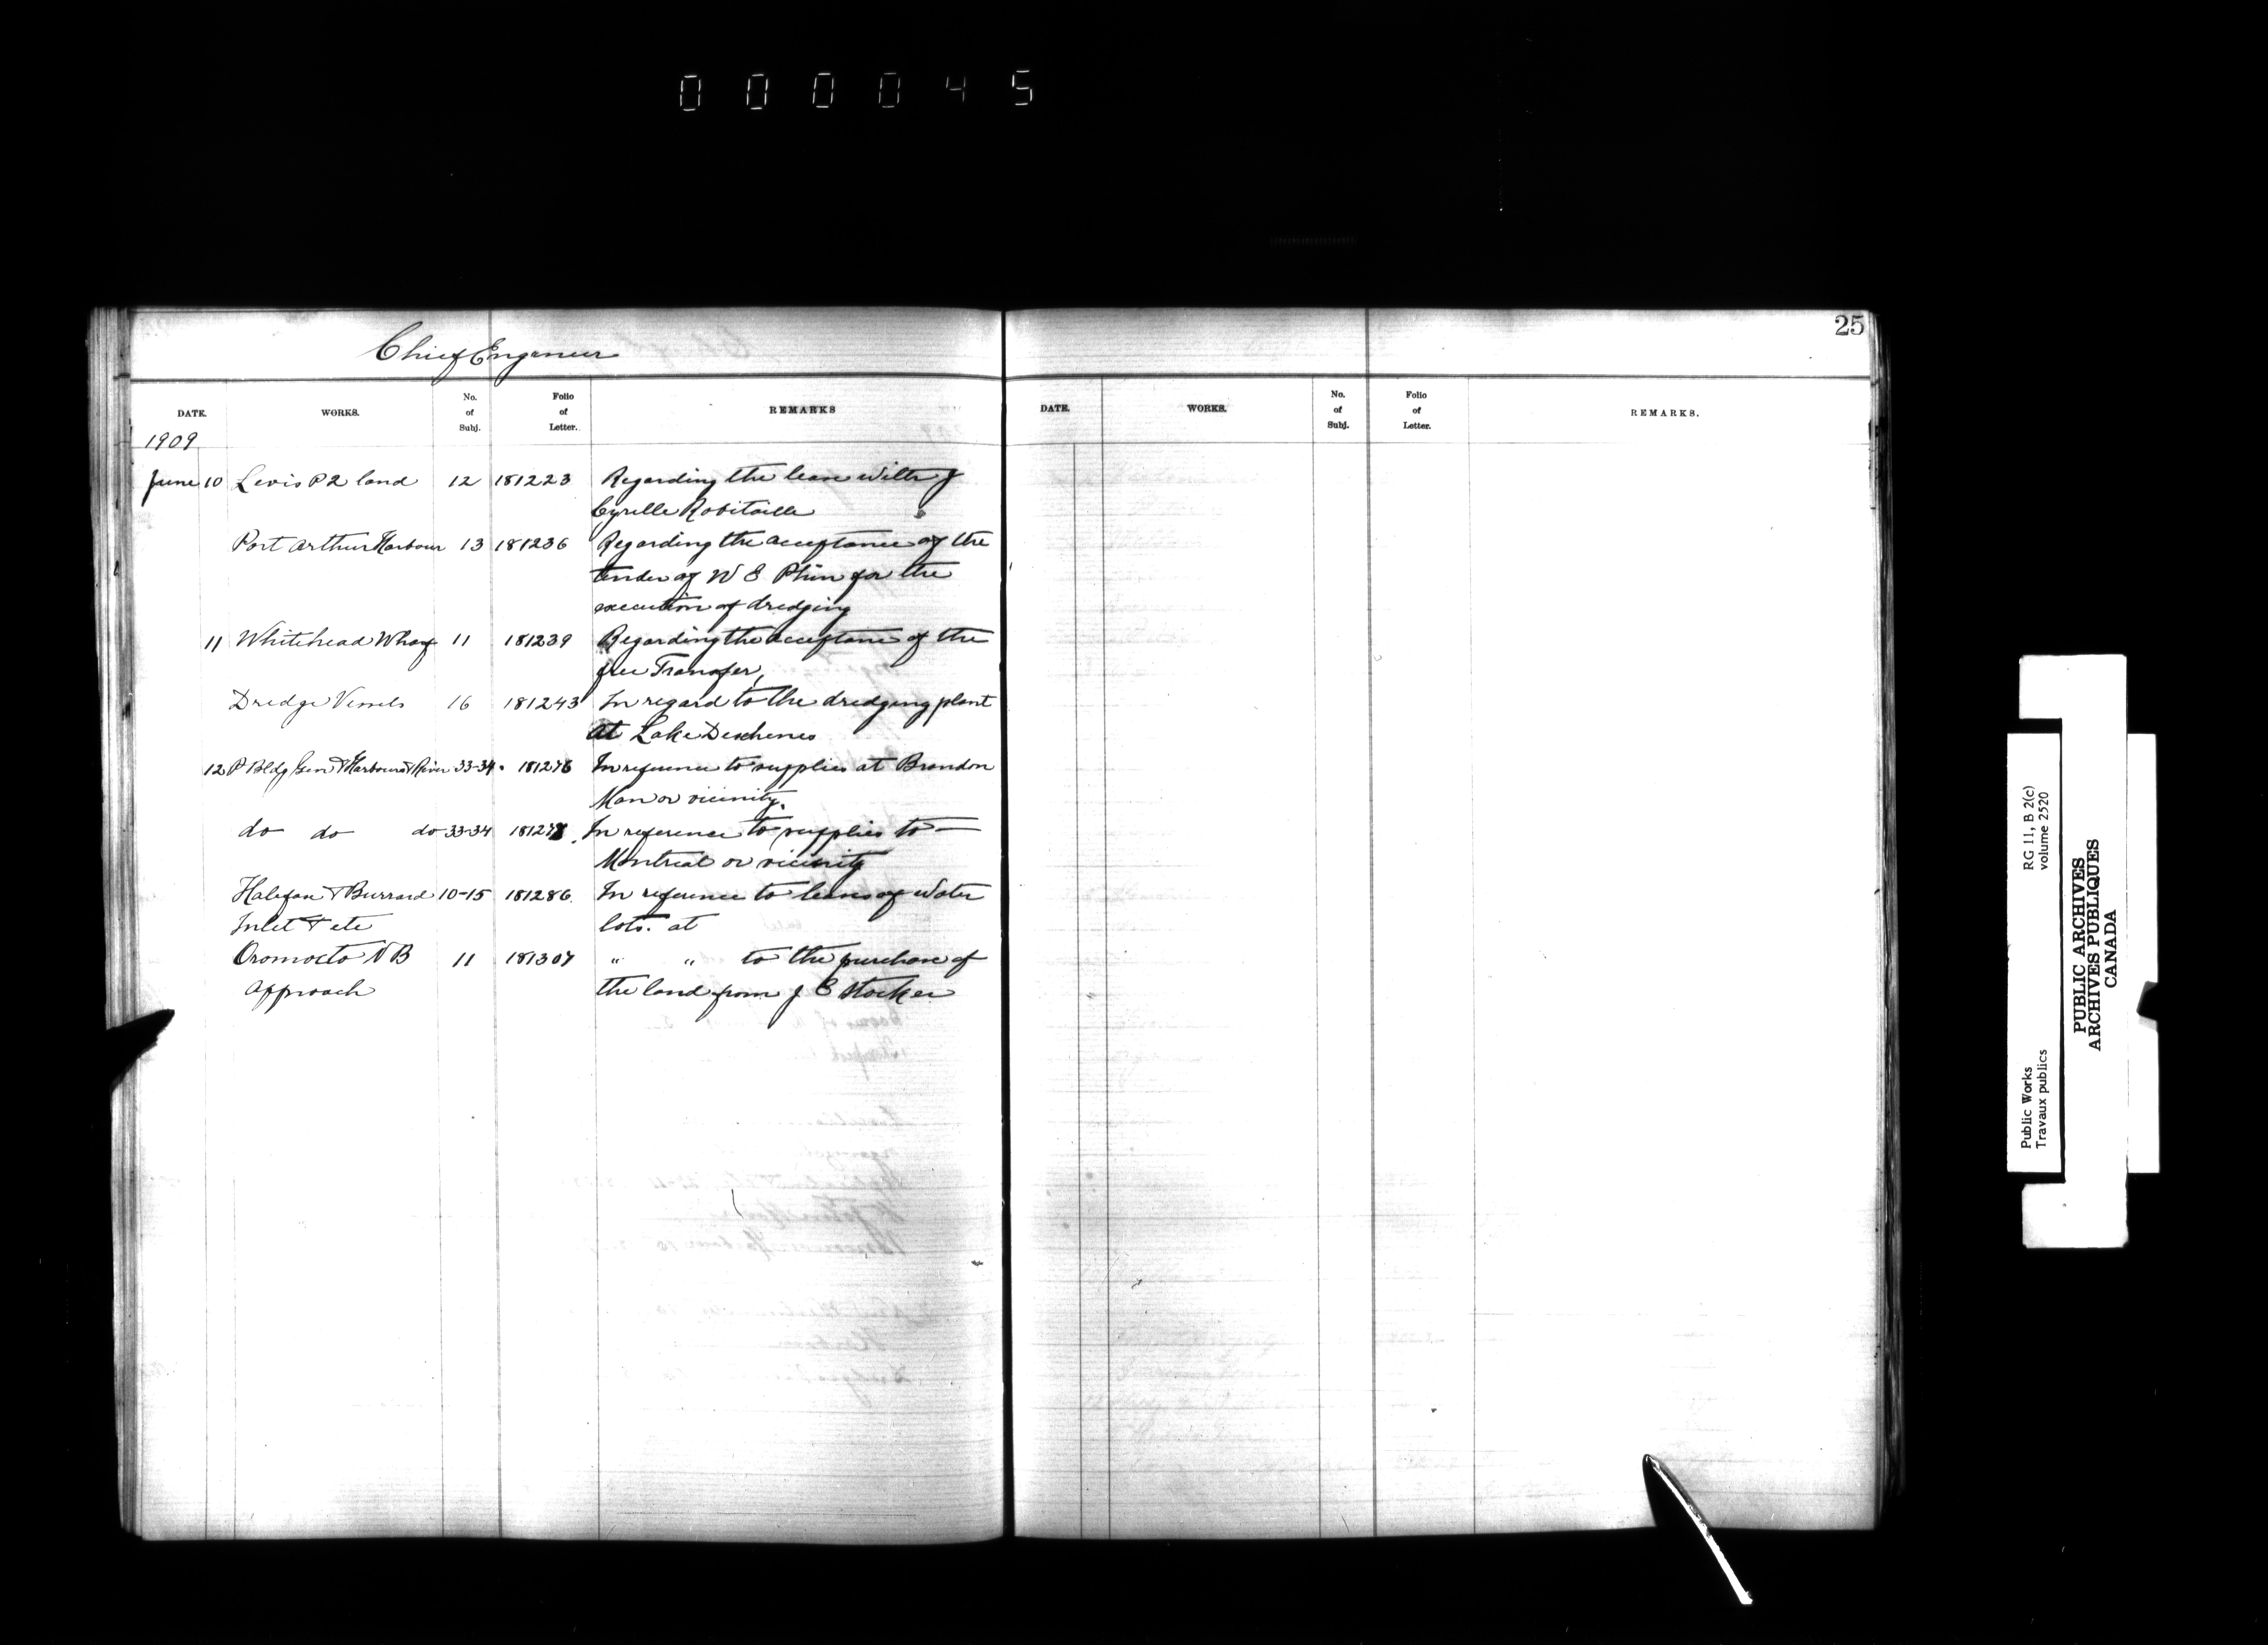 000045
25
Chief Engineer
DATE. WORKS. No. of Subj. Folio of Letter. REMARKS
DATE. WORKS. No. of Subj. Folio of Letter. REMARKS.
1909
June 10 Levis P 2 land 12 181223 Regarding the lease with J
Cyrille Robitaille
Port Arthur Harbour 13 181236 Regarding the acceptance of the
tender of W E Phin for the
execution of dredging
11 Whitehead Wharf 11 181239 Regarding the acceptance of the
free Transfer,
Dredge Vessels 16 181243 In regard to the dredging plant
at Lake Deschenes
12 P Bldg Gen & Harbours & River 33-34 In reference to supplies at Brandon
Man or vicinity.
do do do 33-34 In reference to supplies to —
Montreal or vicinity
Halifax & Burrard 10-15 181286. In reference to leases of water
Inlet & etc lots. at
Oromocto NB 11 181307 " " to the purchase of
approach the land from J E Stocker
Public Works RG 11, B 2(c)
Travaux publics volume 2520
PUBLIC ARCHIVES
ARCHIVES PUBLIQUES
CANADA